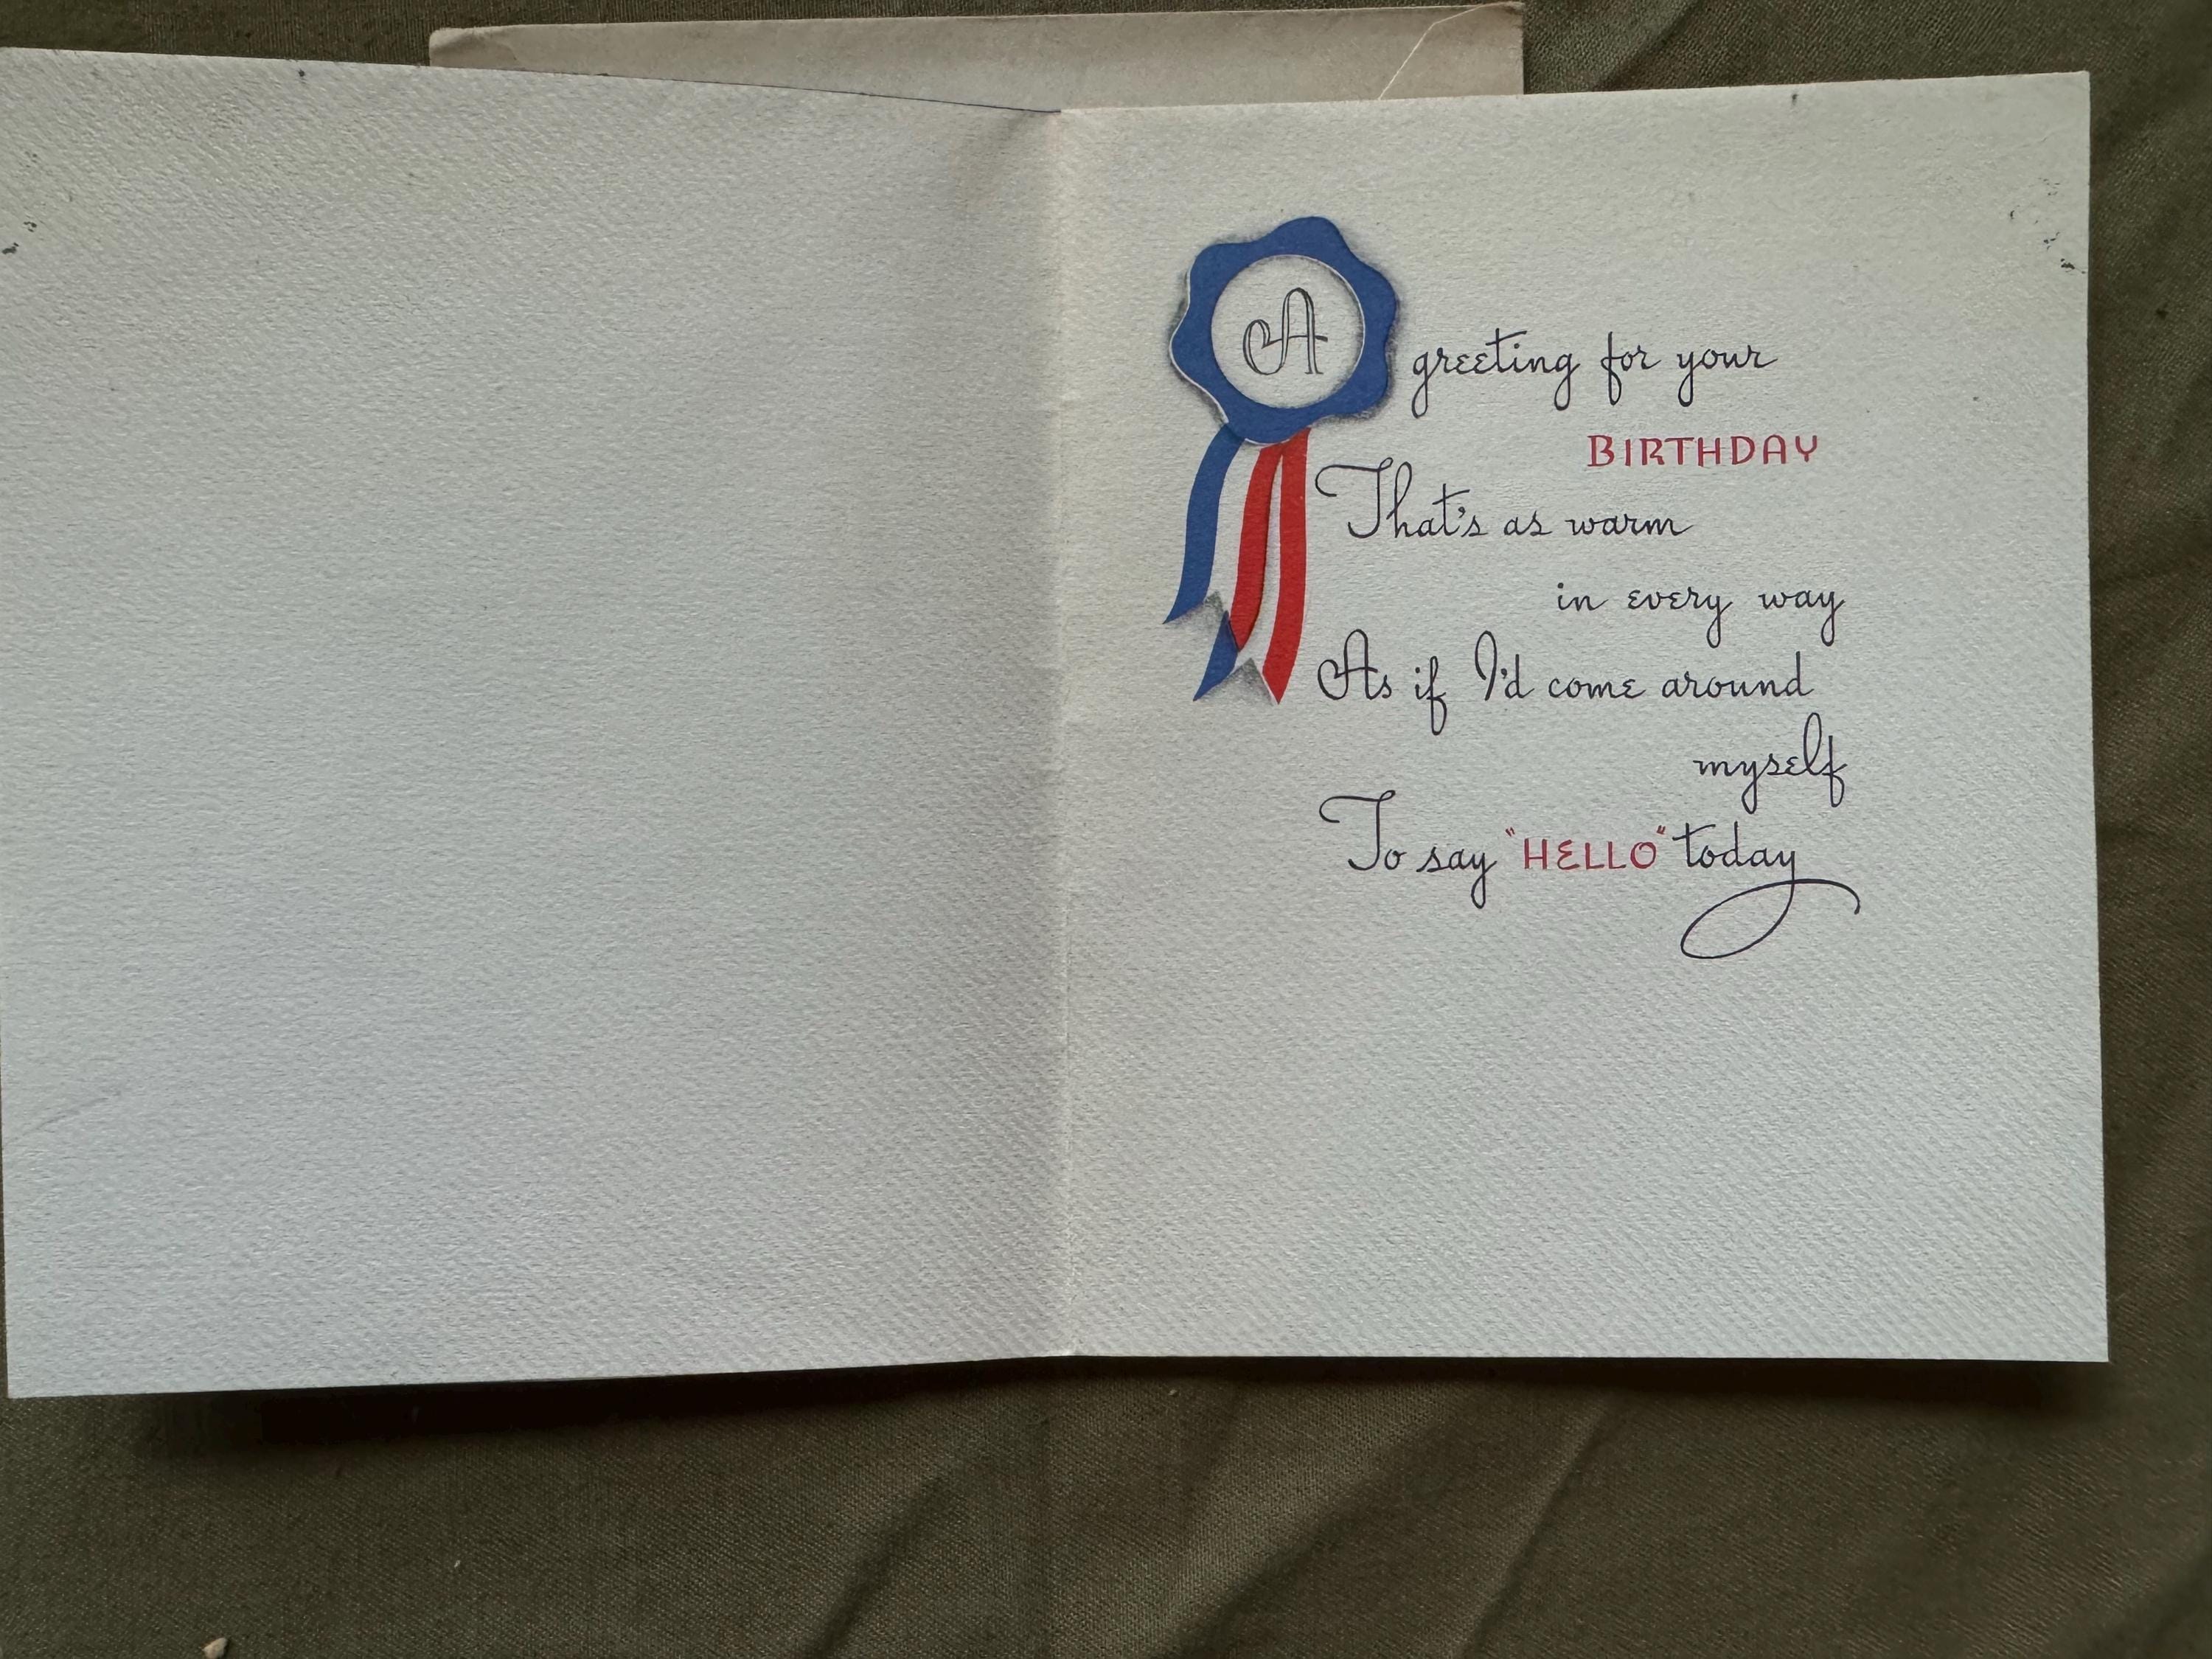 A greeting for your
BIRTHDAY
That's as warm
in every way
As if I'd come around
myself
To say "HELLO" today